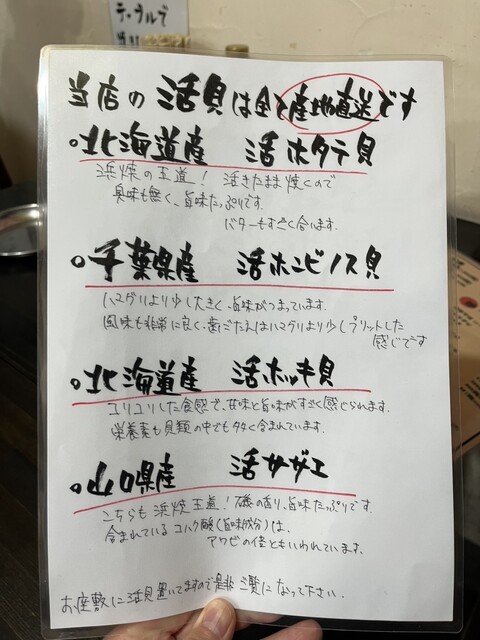 テーブルで
当店の活貝は全て産地直送です
北海道産 活ホタテ貝
浜焼の王道! 活きたまま焼くので
臭味も無く、旨味たっぷりです。
バターもすごく合います。
千葉県産 活ホンビノス貝
ハマグリより少し大きく、旨味がつまっています。
風味も非常に良く、歯ごたえはハマグリより少しプリットした
感じです
北海道産 活ホッキ貝
コリコリした食感で、甘味と旨味がすごく感じられます。
栄養素も貝類の中でも多く含まれています。
山口県産 活サザエ
こちらも浜焼王道!磯の香り、旨味たっぷりです。
含まれているコハク酸(旨味成分)は、
アワビの倍ともいわれています。
お座敷に活貝置いてますので是非ご覧になって下さい.